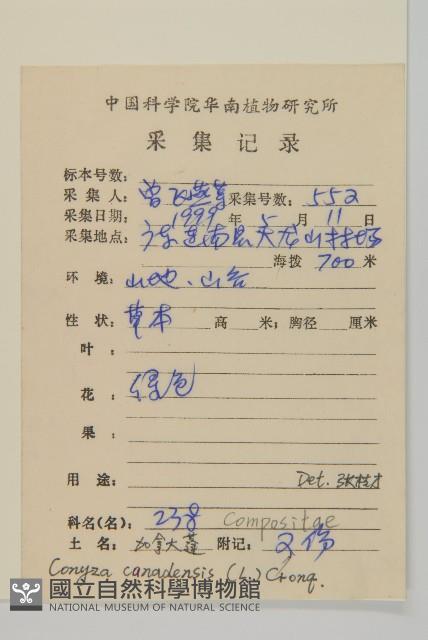 中国科学院华南植物研究所
采集记录
标本号数:
采集人: 曾飞燕等 采集号数: 552
采集日期: 1999 年 5 月 11 日
采集地点: 广东连南县天龙山林场
海拨 700 米
环境: 山地、山谷
性状: 草本 高 米; 胸径 厘米
叶:
花: 绿色
果:
用途: Det. 张桂才
科名(名): 238 Compositae
土名: 加拿大蓬 附记: 2份
Conyza canadensis (L.) Cronq.
國立自然科學博物館
NATIONAL MUSEUM OF NATURAL SCIENCE